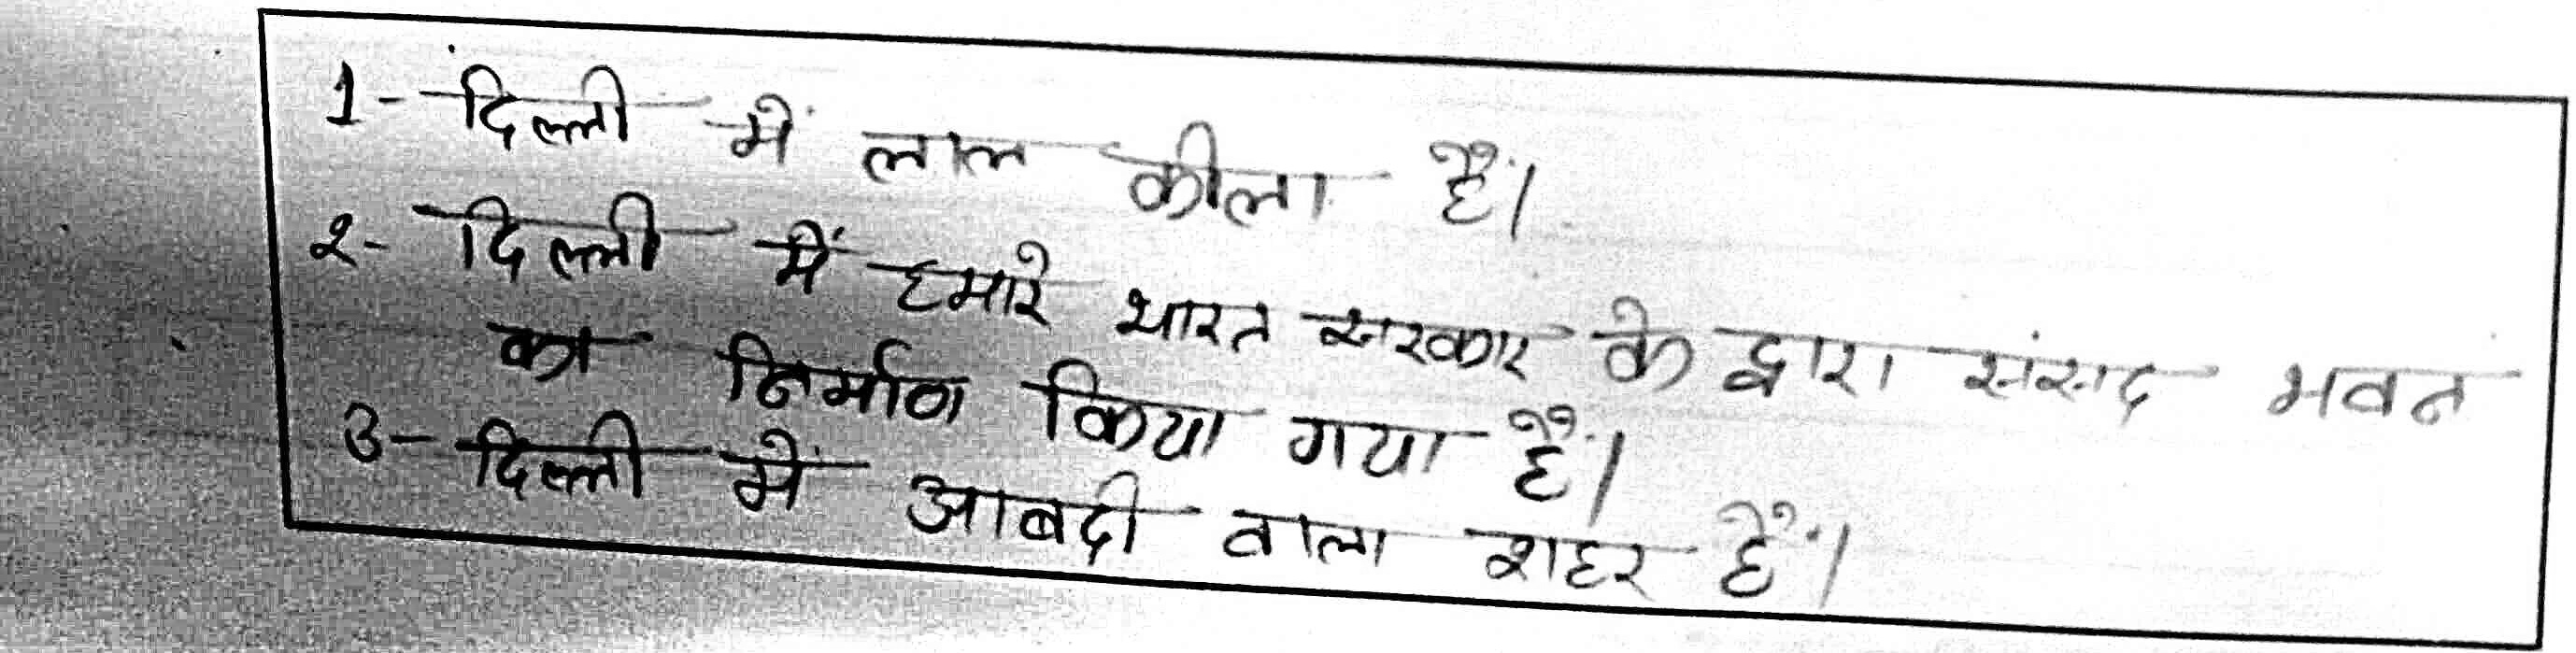 1- दिल्ली में लाल कीला हैं।
२- दिल्ली में हमारे भारत सरकार के द्वारा संसद भवन
का निर्माण किया गया हैं।
3- दिल्ली में आबदी वाला शहर हैं।